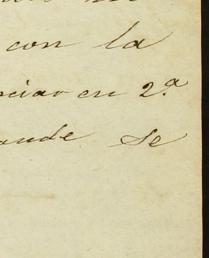 con la
ciar en 2.ª
ande se